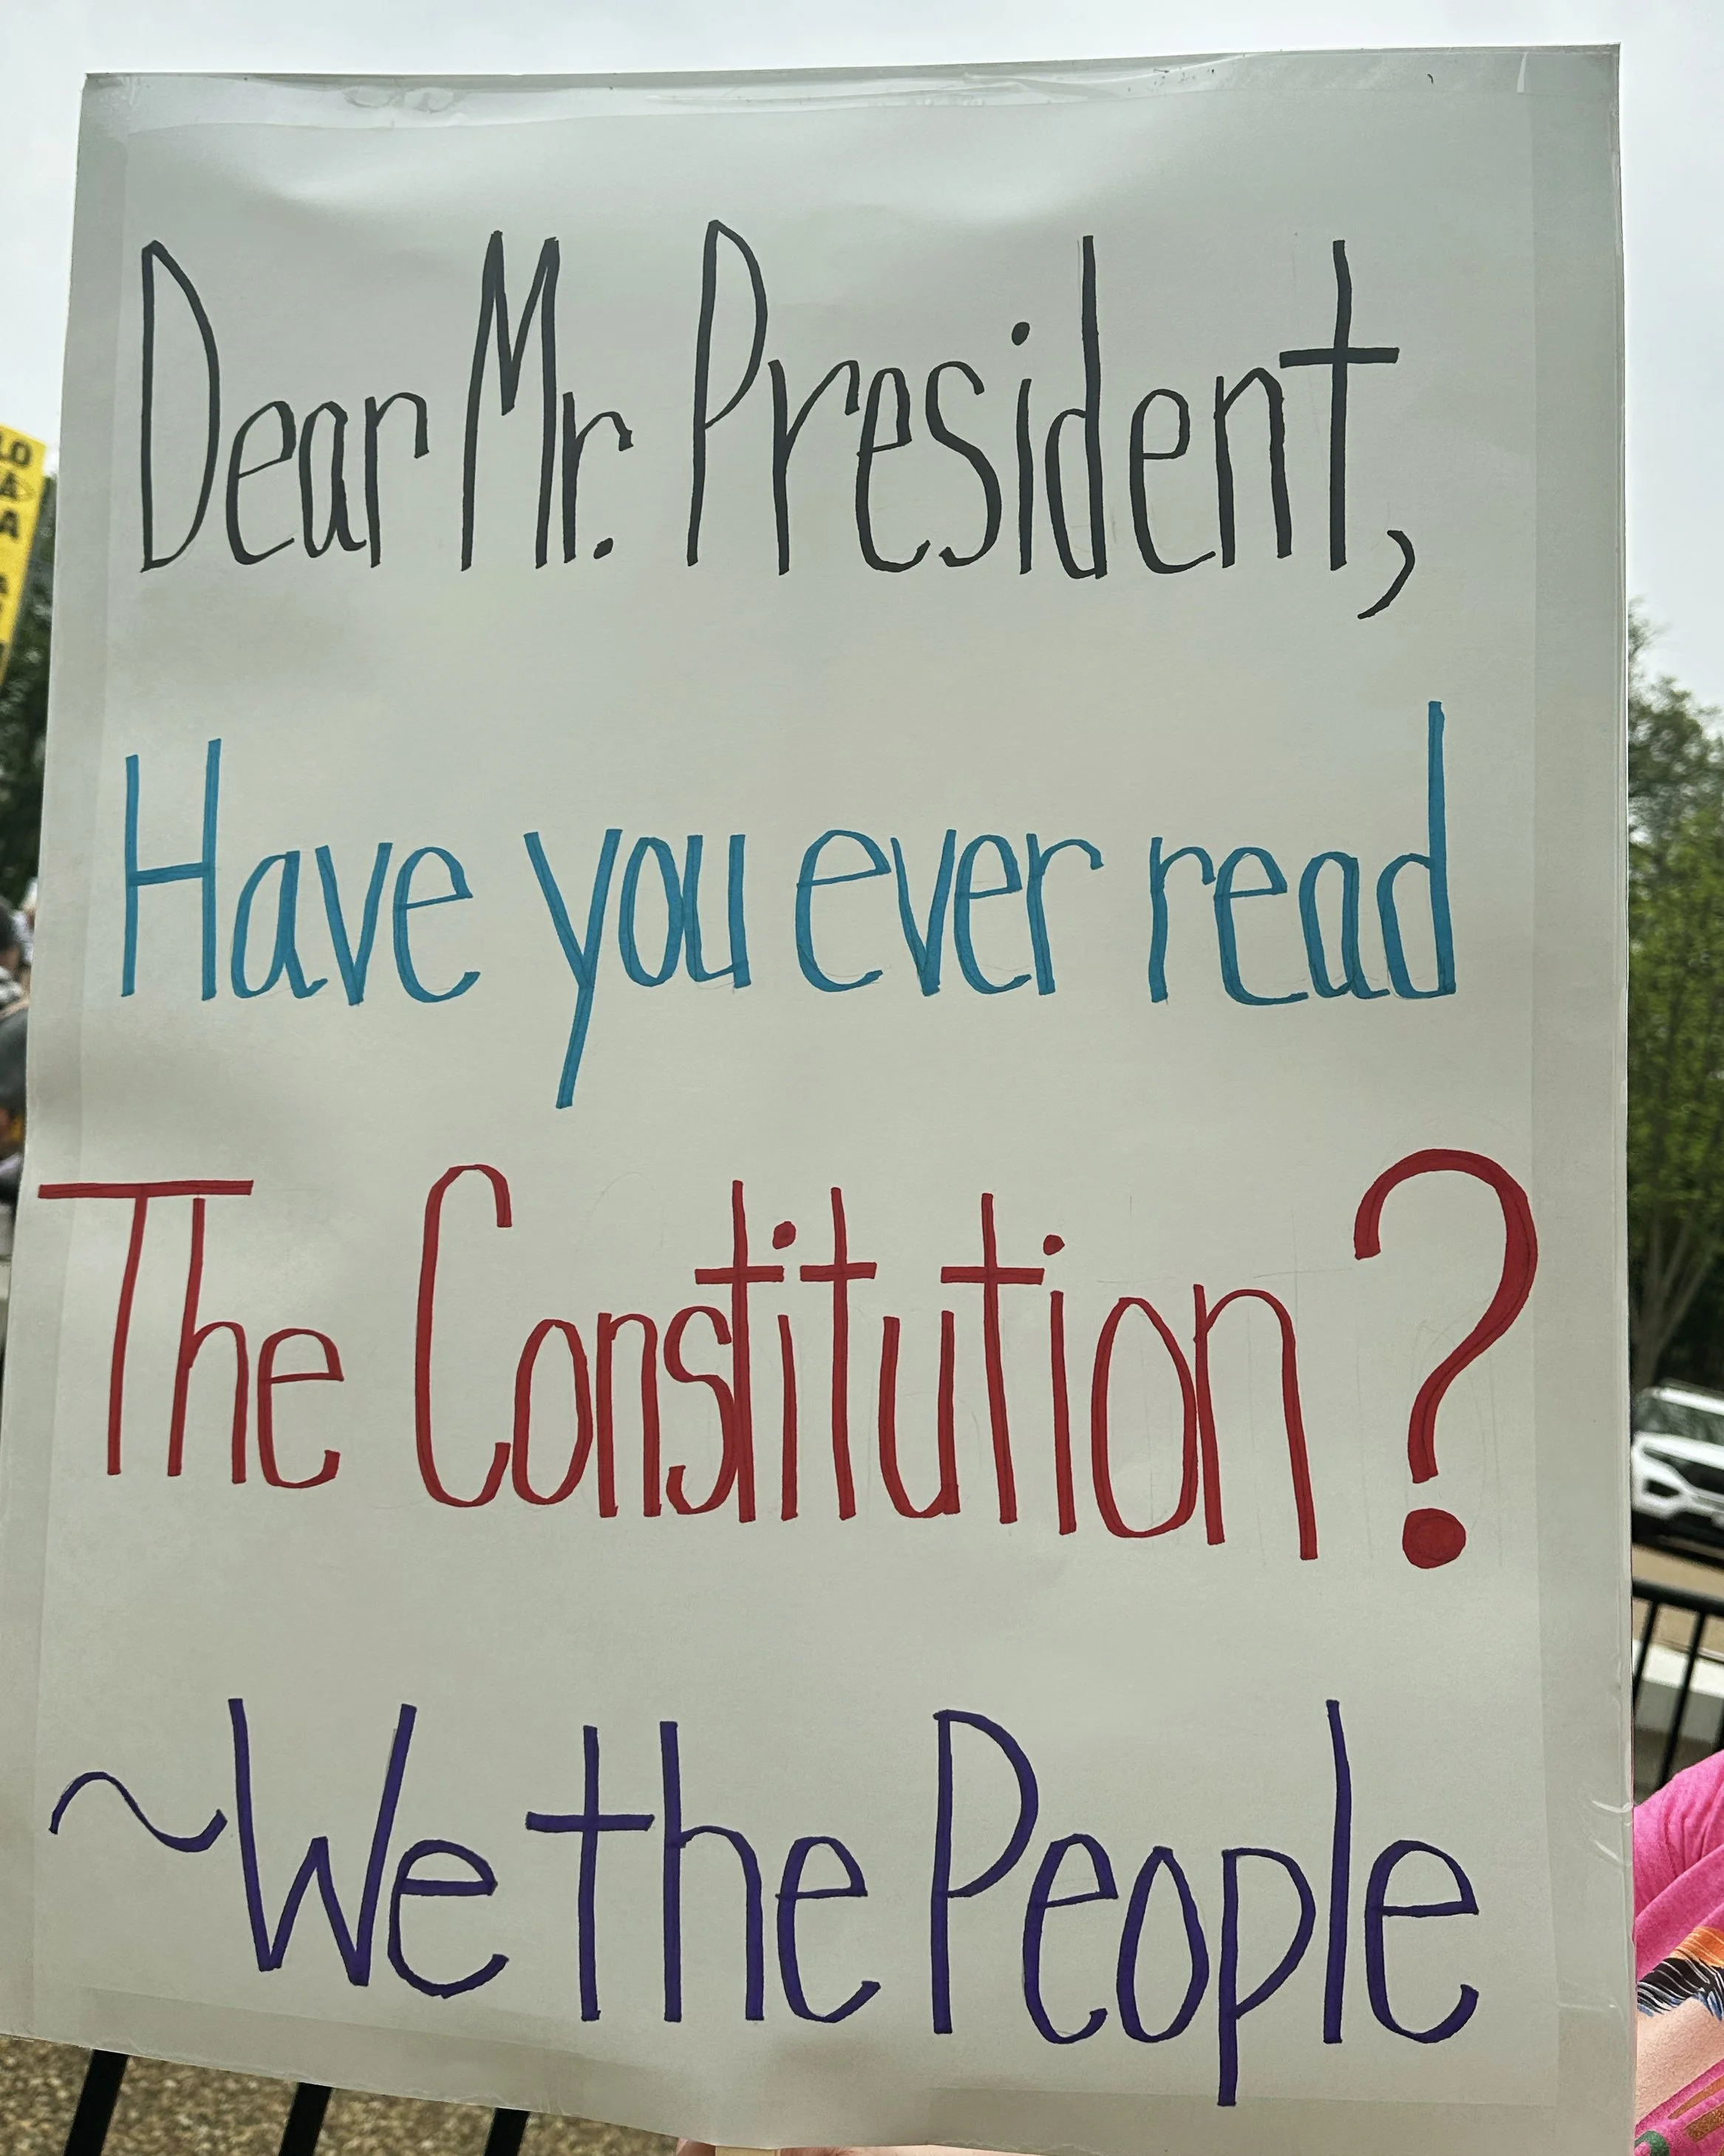 Dear Mr. President,
Have you ever read
The Constitution?
~We the People